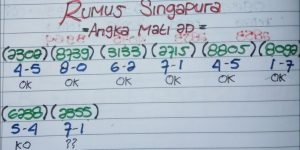 RUMUS SINGAPURA
=ANGKA MATI 2D=
(2302) (8739) (3133) (2715) (8805) (8099)
4-5 8-0 6-2 7-1 4-5 1-7
OK OK OK OK OK OK
(6238) (2355)
5-4 7-1
KO ??